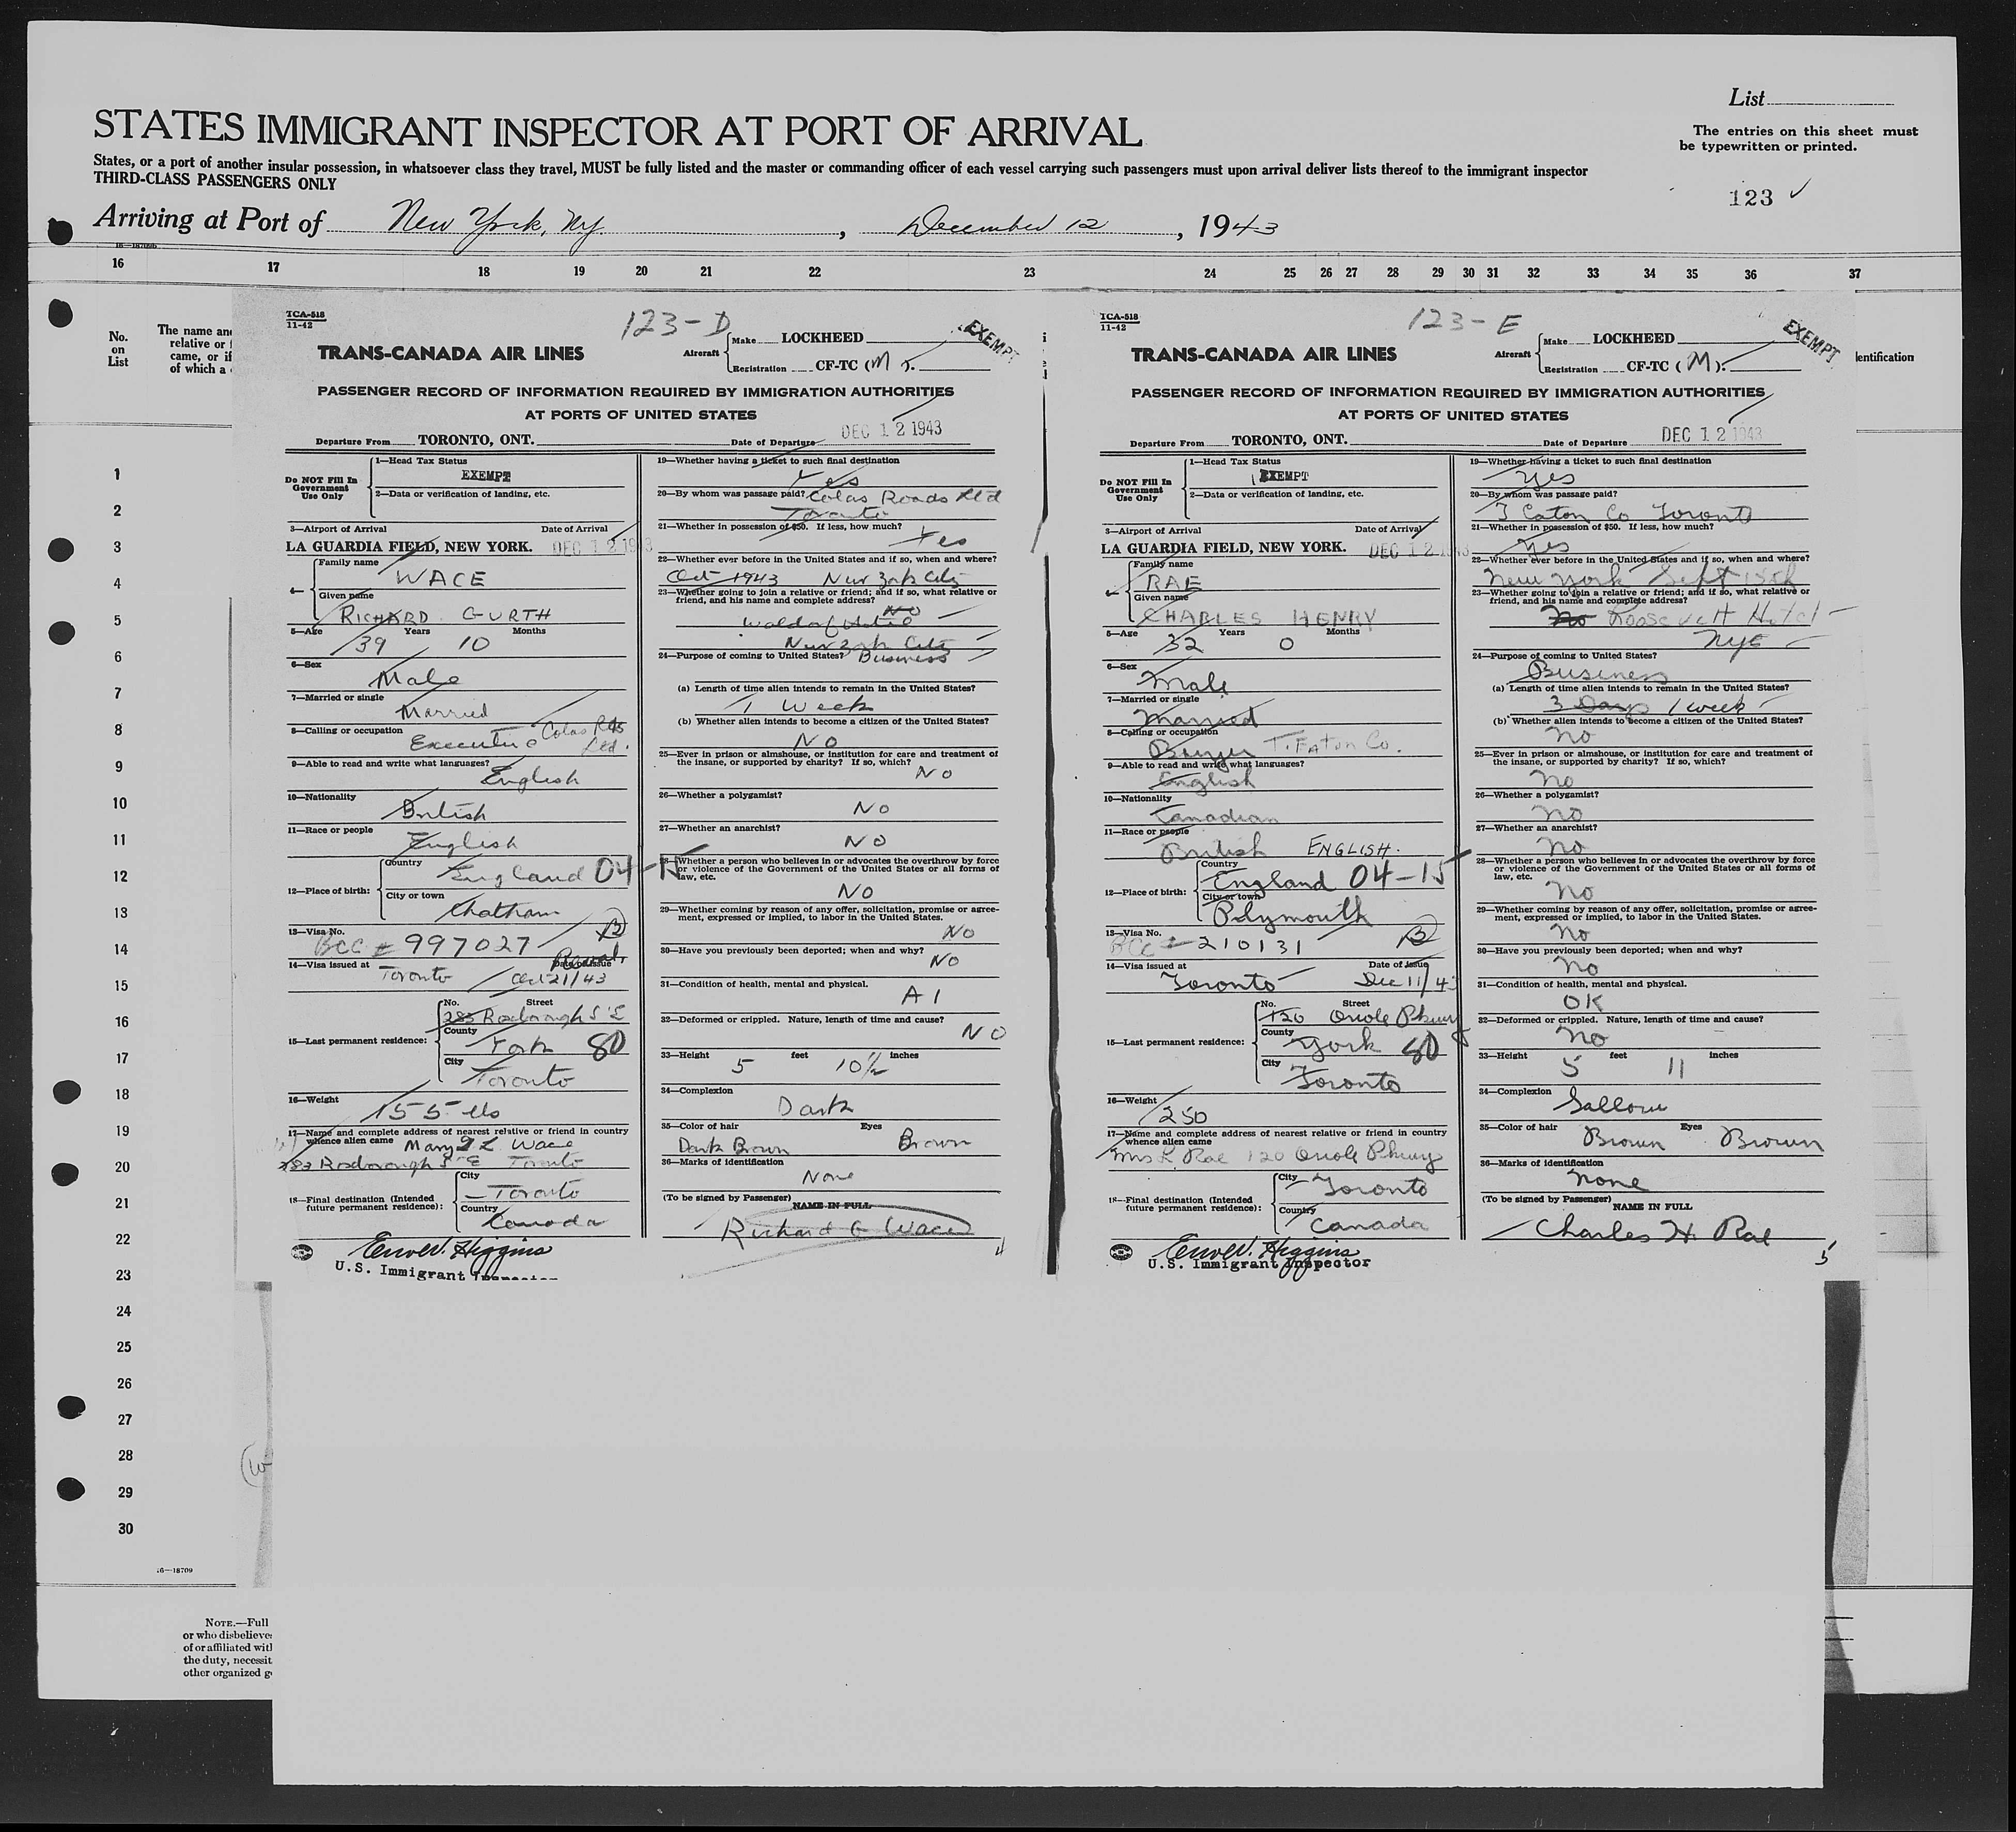 List
STATES IMMIGRANT INSPECTOR AT PORT OF ARRIVAL
The entries on this sheet must
be typewritten or printed.
States, or a port of another insular possession, in whatsoever class they travel, MUST be fully listed and the master or commanding officer of each vessel carrying such passengers must upon arrival deliver lists thereof to the immigrant inspector
THIRD-CLASS PASSENGERS ONLY
123 ✓
Arriving at Port of New York, Ny. , December 12 , 1943
16 17 18 19 20 21 22 23 24 25 26 27 28 29 30 31 32 33 34 35 36 37
No.
on
List
The name an
relative or
came, or if
of which a
entification
1
2
3
4
5
6
7
8
9
10
11
12
13
14
15
16
17
18
19
20
21
22
23
24
25
26
27
28
29
30
16—18709
NOTE.—Full
or who disbelieve
of or affiliated wit
the duty, necessit
other organized g
TCA-518
11-42
123-D
EXEMPT
TRANS-CANADA AIR LINES
Aircraft Make LOCKHEED
Registration CF-TC (M).
PASSENGER RECORD OF INFORMATION REQUIRED BY IMMIGRATION AUTHORITIES
AT PORTS OF UNITED STATES
Departure From TORONTO, ONT. Date of Departure DEC 12 1943
Do NOT Fill In
Government
Use Only
1—Head Tax Status
EXEMPT
2—Data or verification of landing, etc.
3—Airport of Arrival Date of Arrival
LA GUARDIA FIELD, NEW YORK. DEC 12 1943
4— Family name
WACE
Given name
RICHARD GURTH
5—Age Years Months
39 10
6—Sex
Male
7—Married or single
Married
8—Calling or occupation
Executive Colas Rds Ltd.
9—Able to read and write what languages?
English
10—Nationality
British
11—Race or people
English
12—Place of birth: Country
England 04-15
City or town
Chatham
13—Visa No.
BCC # 997027 B
14—Visa issued at Date of Issue
Toronto Oct 21/43
15—Last permanent residence: No. Street
283 Roxborough St E
County
York 80
City
Toronto
16—Weight
155 lbs
17—Name and complete address of nearest relative or friend in country
whence alien came Mary L Wace
283 Roxborough St E Toronto
18—Final destination (Intended
future permanent residence): City
Toronto
Country
Canada
U.S. Immigrant Inspector
19—Whether having a ticket to such final destination
Yes
20—By whom was passage paid? Colas Roads Ltd
Toronto
21—Whether in possession of $50. If less, how much?
Yes
22—Whether ever before in the United States and if so, when and where?
Oct 1943 New York City
23—Whether going to join a relative or friend; and if so, what relative or
friend, and his name and complete address? No
Waldorf Hotel
New York City
24—Purpose of coming to United States? Business
(a) Length of time alien intends to remain in the United States?
1 Week
(b) Whether alien intends to become a citizen of the United States?
No
25—Ever in prison or almshouse, or institution for care and treatment of
the insane, or supported by charity? If so, which?
No
26—Whether a polygamist?
No
27—Whether an anarchist?
No
28—Whether a person who believes in or advocates the overthrow by force
or violence of the Government of the United States or all forms of
law, etc.
No
29—Whether coming by reason of any offer, solicitation, promise or agree-
ment, expressed or implied, to labor in the United States.
No
30—Have you previously been deported; when and why?
No
31—Condition of health, mental and physical.
A1
32—Deformed or crippled. Nature, length of time and cause?
No
33—Height 5 feet 10½ inches
34—Complexion
Dark
35—Color of hair Eyes
Dark Brown Brown
36—Marks of identification
None
(To be signed by Passenger)
NAME IN FULL
Richard G Wace
4
TCA-518
11-42
123-E
EXEMPT
TRANS-CANADA AIR LINES
Aircraft Make LOCKHEED
Registration CF-TC (M).
PASSENGER RECORD OF INFORMATION REQUIRED BY IMMIGRATION AUTHORITIES
AT PORTS OF UNITED STATES
Departure From TORONTO, ONT. Date of Departure DEC 12 1943
Do NOT Fill In
Government
Use Only
1—Head Tax Status
EXEMPT
2—Data or verification of landing, etc.
3—Airport of Arrival Date of Arrival
LA GUARDIA FIELD, NEW YORK. DEC 12 1943
Family name
RAE
Given name
CHARLES HENRY
5—Age Years Months
32 0
6—Sex
Male
7—Married or single
Married
8—Calling or occupation
Buyer T. EATON Co.
9—Able to read and write what languages?
English
10—Nationality
Canadian
11—Race or people
British ENGLISH.
12—Place of birth: Country
England 04-15
City or town
Plymouth
13—Visa No.
BCC # 210131 B
14—Visa issued at Date of Issue
Toronto Dec 11/43
15—Last permanent residence: No. Street
120 Oriole Pkwy
County
York 80
City
Toronto
16—Weight
250
17—Name and complete address of nearest relative or friend in country
whence alien came
Mrs R. Rae 120 Oriole Pkwy
18—Final destination (Intended
future permanent residence): City
Toronto
Country
Canada
U.S. Immigrant Inspector
19—Whether having a ticket to such final destination
Yes
20—By whom was passage paid?
T Eaton Co Toronto
21—Whether in possession of $50. If less, how much?
Yes
22—Whether ever before in the United States and if so, when and where?
New York Sept 15th
23—Whether going to join a relative or friend; and if so, what relative or
friend, and his name and complete address?
No Roosevelt Hotel
NYC
24—Purpose of coming to United States?
Business
(a) Length of time alien intends to remain in the United States?
3 Days 1 week
(b) Whether alien intends to become a citizen of the United States?
no
25—Ever in prison or almshouse, or institution for care and treatment of
the insane, or supported by charity? If so, which?
no
26—Whether a polygamist?
no
27—Whether an anarchist?
no
28—Whether a person who believes in or advocates the overthrow by force
or violence of the Government of the United States or all forms of
law, etc.
no
29—Whether coming by reason of any offer, solicitation, promise or agree-
ment, expressed or implied, to labor in the United States.
no
30—Have you previously been deported; when and why?
no
31—Condition of health, mental and physical.
OK
32—Deformed or crippled. Nature, length of time and cause?
no
33—Height 5 feet 11 inches
34—Complexion
Sallow
35—Color of hair Eyes
Brown Brown
36—Marks of identification
none
(To be signed by Passenger)
NAME IN FULL
Charles H. Rae
5